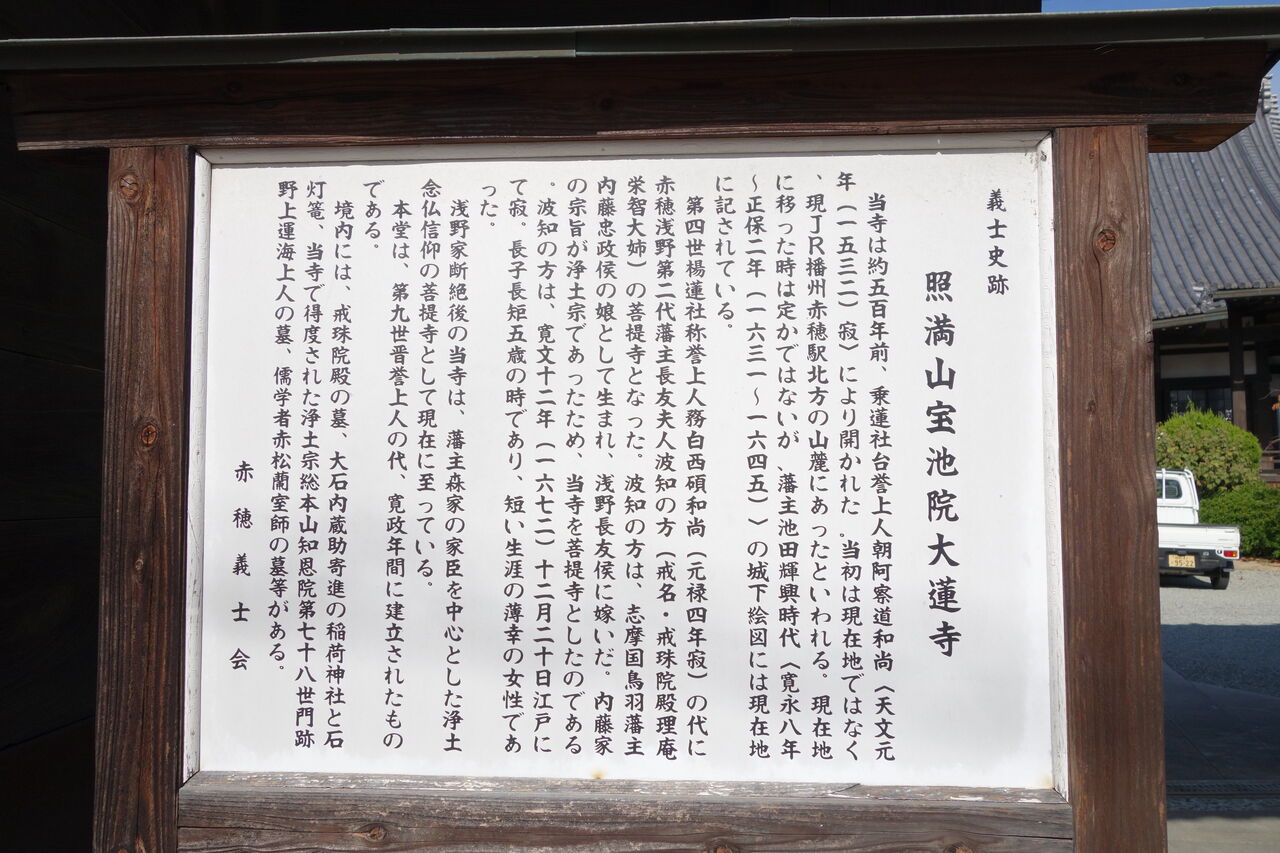 義士史跡
照満山宝池院大蓮寺
当寺は約五百年前、乗蓮社台誉上人朝阿察道和尚〈天文元
年（一五三二）寂〉により開かれた。当初は現在地ではなく
、現ＪＲ播州赤穂駅北方の山麓にあったといわれる。現在地
に移った時は定かではないが、藩主池田輝興時代〈寛永八年
～正保二年（一六三一～一六四五）〉の城下絵図には現在地
に記されている。
第四世楊蓮社称誉上人務白西碩和尚（元禄四年寂）の代に
赤穂浅野第二代藩主長友夫人波知の方（戒名・戒珠院殿理庵
栄智大姉）の菩提寺となった。波知の方は、志摩国鳥羽藩主
内藤忠政侯の娘として生まれ、浅野長友侯に嫁いだ。内藤家
の宗旨が浄土宗であったため、当寺を菩提寺としたのである
。波知の方は、寛文十二年（一六七二）十二月二十日江戸に
て寂。長子長矩五歳の時であり、短い生涯の薄幸の女性であ
った。
浅野家断絶後の当寺は、藩主森家の家臣を中心とした浄土
念仏信仰の菩提寺として現在に至っている。
本堂は、第九世晋誉上人の代、寛政年間に建立されたもの
である。
境内には、戒珠院殿の墓、大石内蔵助寄進の稲荷神社と石
灯篭、当寺で得度された浄土宗総本山知恩院第七十八世門跡
野上運海上人の墓、儒学者赤松蘭室師の墓等がある。
赤穂義士会
95-22